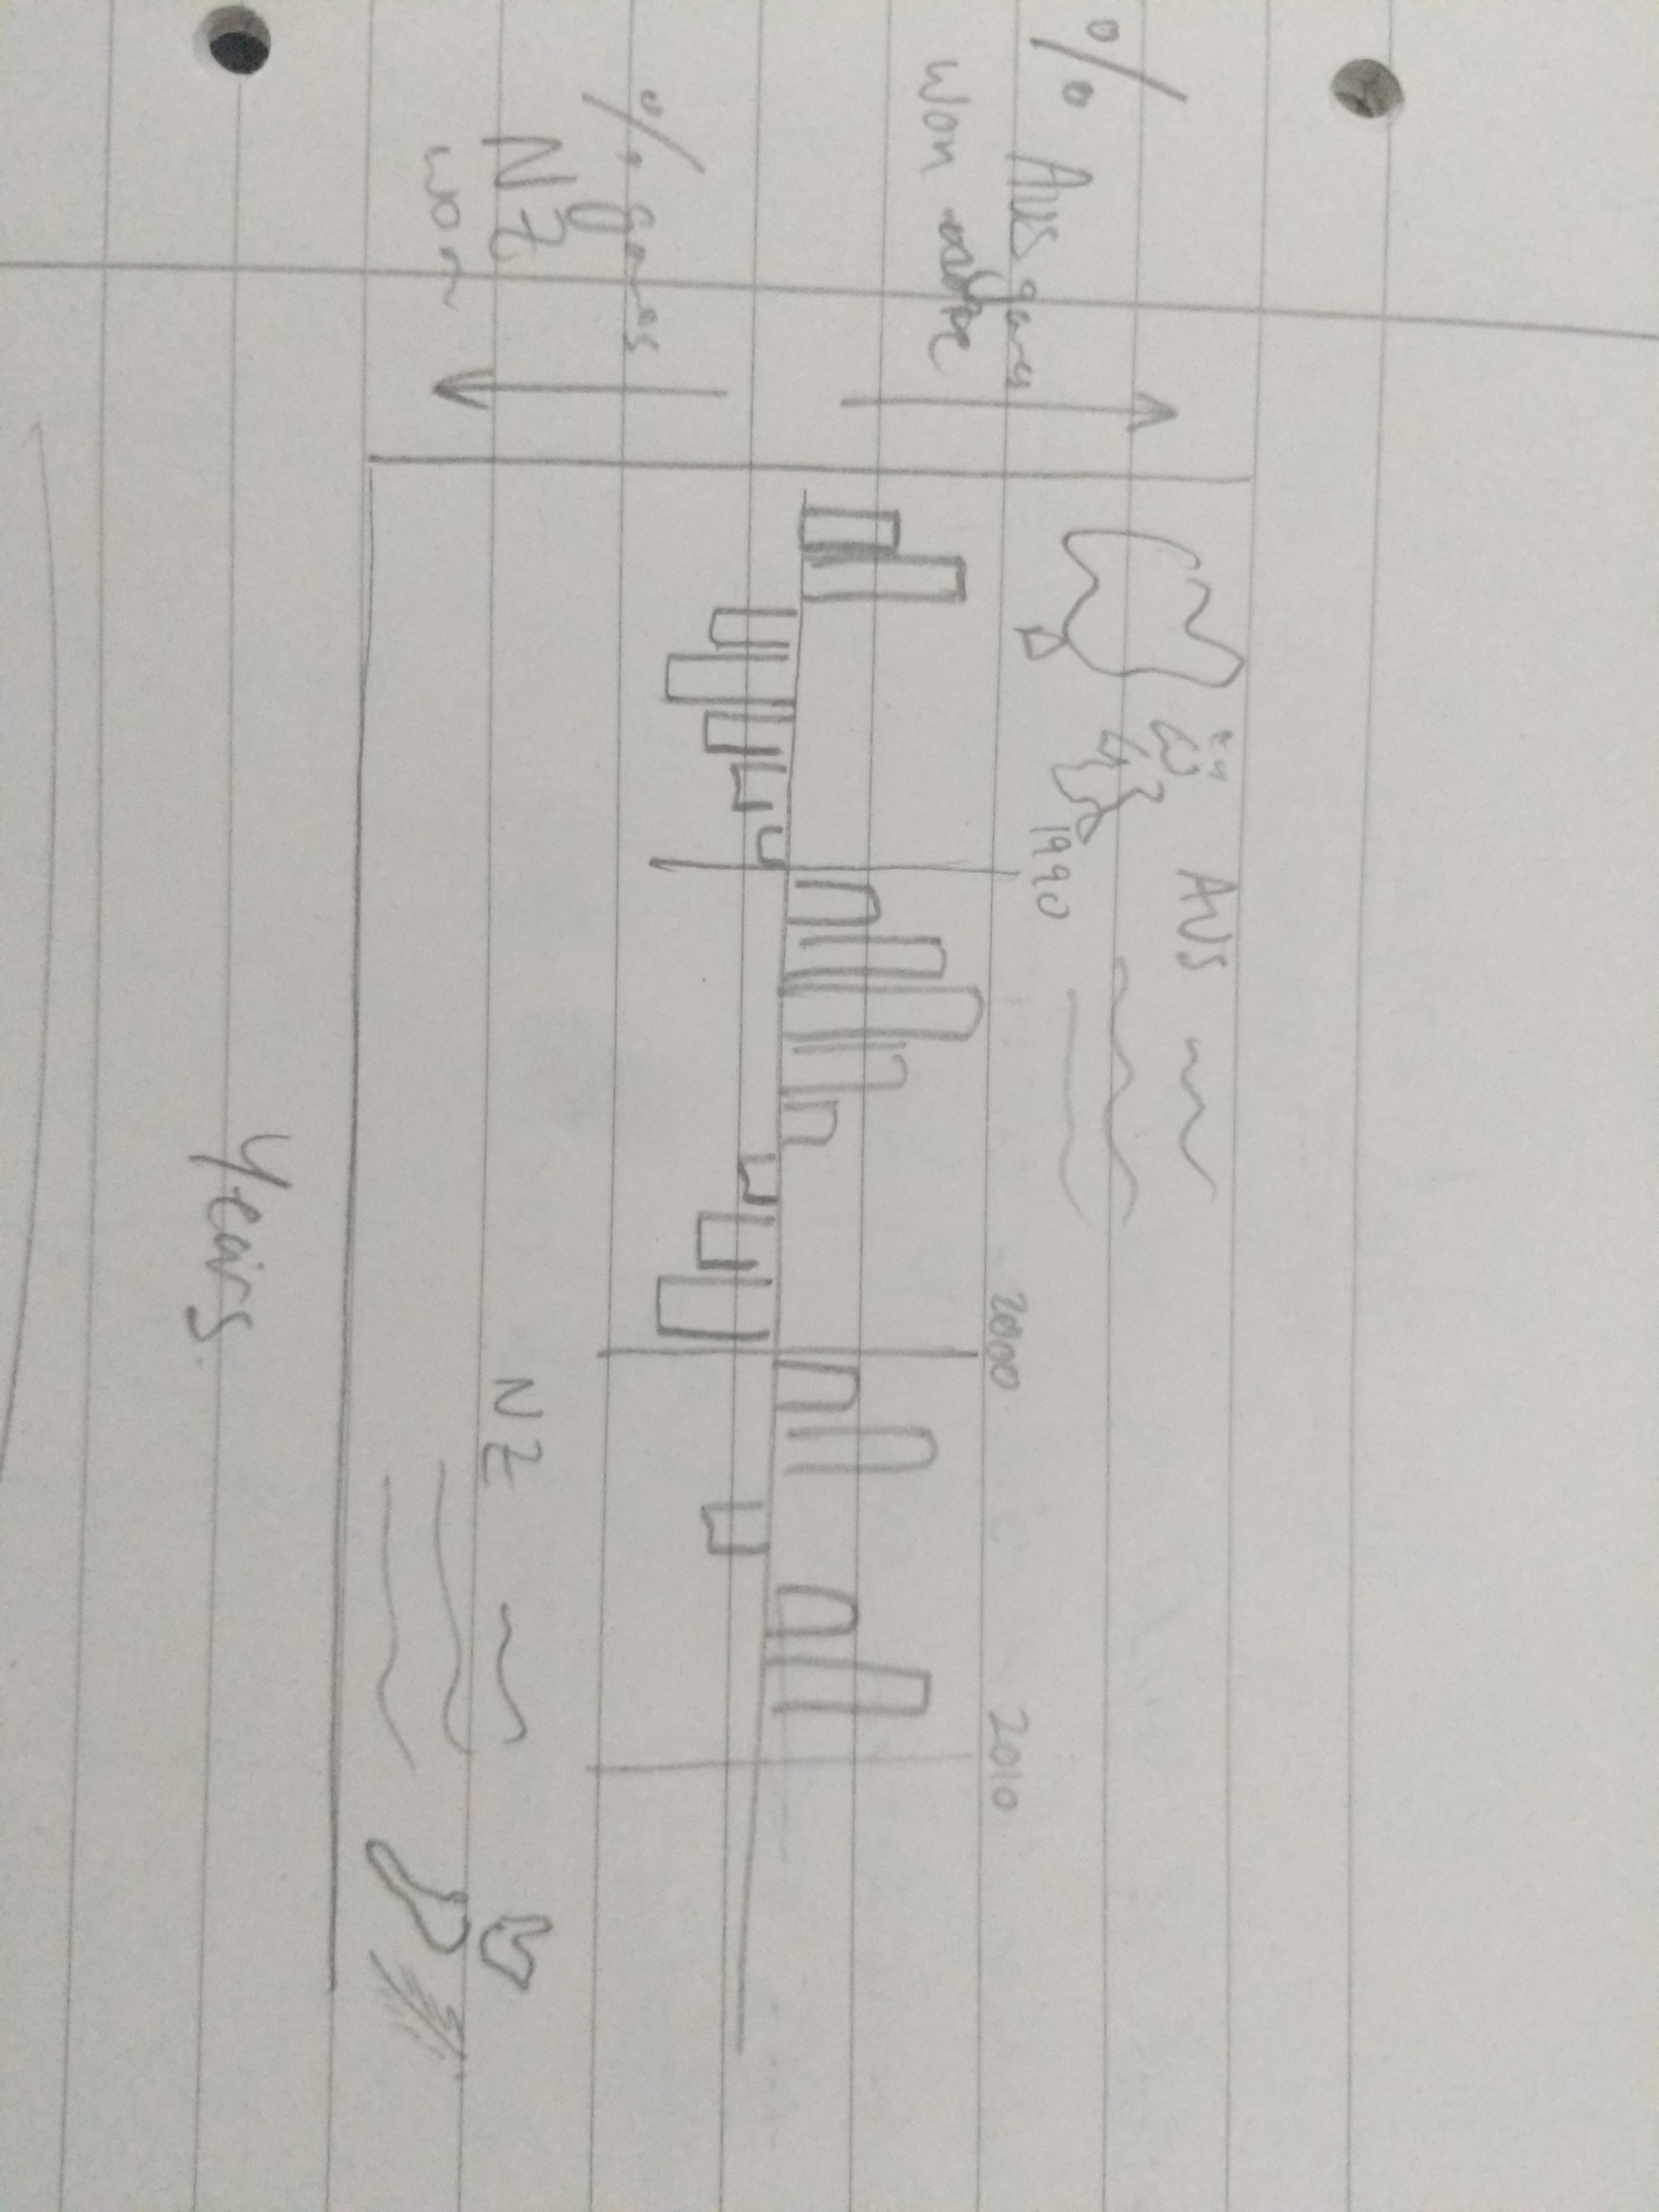 % Aus games
won more
% games
NZ
won
AUS
1990
2000
2010
NZ
Years